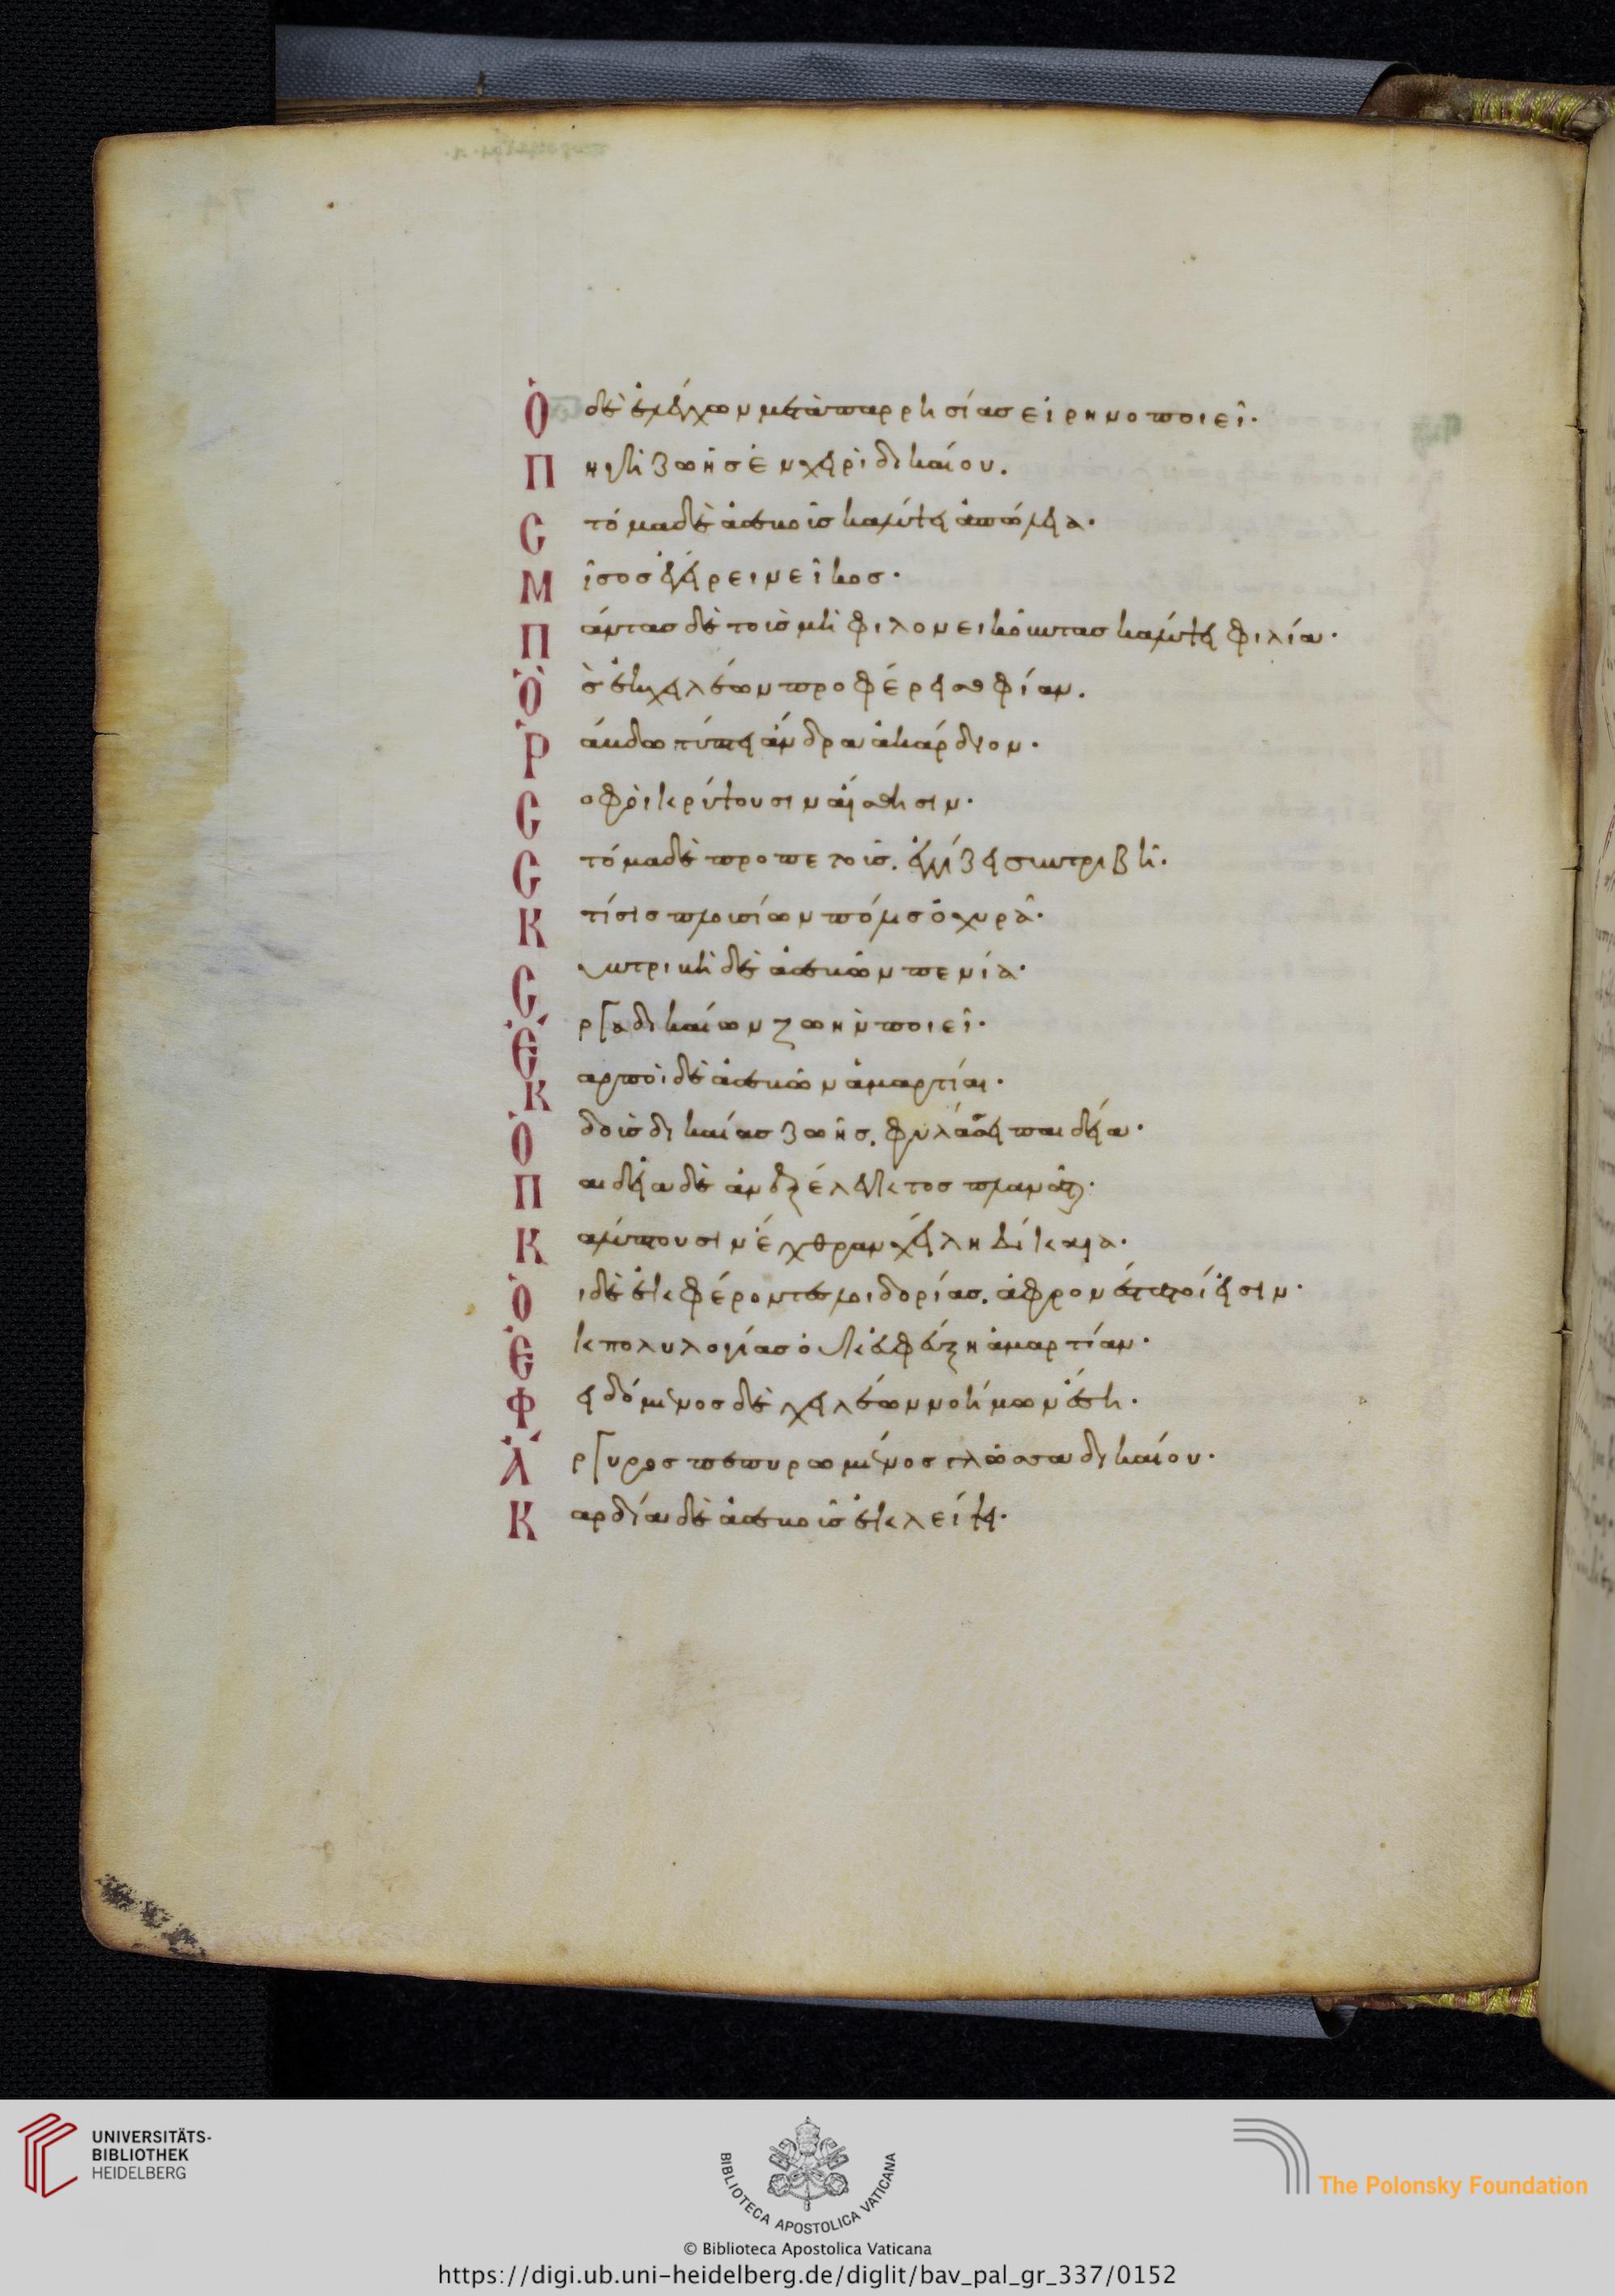 Ὁ δὲ ἐλέγχων μετὰ παρρησίας εἰρηνοποιεῖ·
Πηγὴ ζωῆς ἐν χειρὶ δικαίου.
Στόμα δὲ ἀσεβοῖς καλύψει ἀπώλεια·
Μῖσος ἐγείρει νεῖκος·
Πάντας δὲ τοὺς μὴ φιλονεικοῦντας καλύψει φιλία·
Ὃς ἐκ χειλέων προφέρει σοφίαν.
Ῥάβδω τύπτει ἄνδρα ἀκάρδιον·
Σοφοὶ κρύψουσιν αἴσθησιν·
Στόμα δὲ προπετοῖς. ἐγγίζει συντριβῆ·
Κτίσις πλουσίων πόλις ὀχυρά·
Συντριβὴ δὲ ἀσεβῶν πενία·
Ἔργα δικαίων ζωὴν ποιεῖ·
Καρποὶ δὲ ἀσεβῶν ἁμαρτίαι·
Ὁδοὺς δικαίας ζωῆς. φυλάσσει παιδεία·
Παιδεία δὲ ἀνεξέλεγκτος πλανᾶται·
Καλύπτουσιν ἔχθραν χείλη δίκαια·
Ὁι δὲ ἐκφέροντες λοιδορίας. ἀφρονέστατοί εἰσιν·
Ἐκ πολυλογίας οὐκ ἐκφεύξη ἁμαρτίαν·
Φειδόμενος δὲ χειλέων νοήμων ἔση·
Ἄργυρος πεπυρωμένος γλῶσσα δικαίου·
Καρδία δὲ ἀσεβοῖς ἐκλείψει·
UNIVERSITÄTS-
BIBLIOTHEK
HEIDELBERG
BIBLIOTECA APOSTOLICA VATICANA
The Polonsky Foundation
© Biblioteca Apostolica Vaticana
https://digi.ub.uni-heidelberg.de/diglit/bav_pal_gr_337/0152